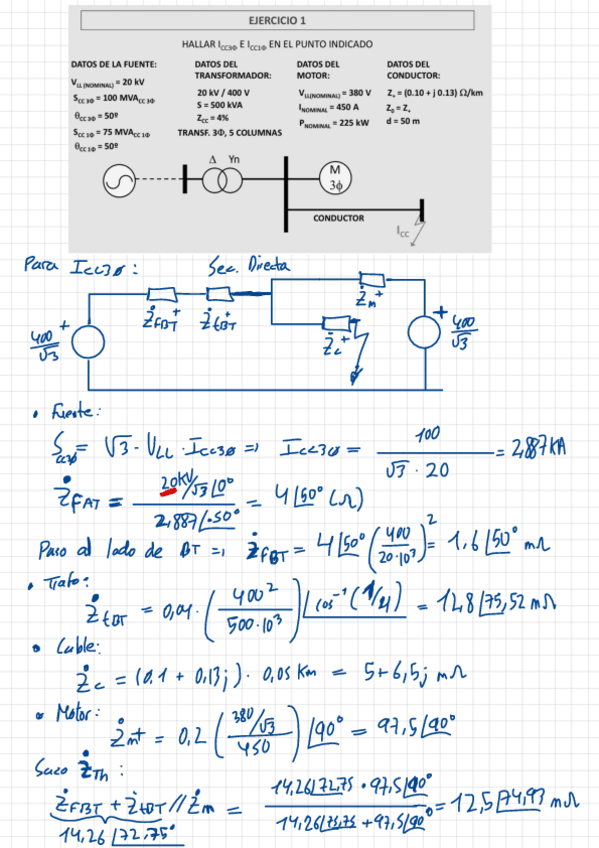 EJERCICIO 1
HALLAR I_CC3Φ E I_CC1Φ EN EL PUNTO INDICADO
DATOS DE LA FUENTE:
V_LL (NOMINAL) = 20 kV
S_CC 3Φ = 100 MVA_CC 3Φ
θ_CC 3Φ = 50º
S_CC 1Φ = 75 MVA_CC 1Φ
θ_CC 1Φ = 50º
DATOS DEL
TRANSFORMADOR:
20 kV / 400 V
S = 500 kVA
Z_CC = 4%
TRANSF. 3Φ, 5 COLUMNAS
DATOS DEL
MOTOR:
V_LL(NOMINAL) = 380 V
I_NOMINAL = 450 A
P_NOMINAL = 225 kW
DATOS DEL
CONDUCTOR:
Z_+ = (0.10 + j 0.13) Ω/km
Z_0 = Z_+
d = 50 m
Δ Yn
M
3ϕ
CONDUCTOR
I_CC
Para Icc3ø: Sec. Directa
400/√3 +
Ż_FBT+ Ż_tBT+
Ż_m+
Ż_c+
+ 400/√3
• Fuente:
S_cc3ø = √3 · U_LL · Icc3ø => Icc3ø = 100 / (√3 · 20) = 2,887 KA
Ż_FAT = (20KV/√3 |0°) / (2,887 |-50°) = 4 |50° (Ω)
Paso al lado de BT => Ż_FBT = 4 |50° (400 / 20·10³)² = 1,6 |50° mΩ
• Trafo:
Ż_tBT = 0,04 · (400² / 500·10³) |cos⁻¹(1/4) = 12,8 |75,52 mΩ
• Cable:
Ż_c = (0,1 + 0,13j) · 0,05 Km = 5 + 6,5j mΩ
• Motor:
Ż_m+ = 0,2 (380/√3 / 450) |90° = 97,5 |90°
Saco Ż_Th:
Ż_FBT + Ż_tBT // Ż_m = (14,26 |72,75 · 97,5 |90°) / (14,26 |73,75 + 97,5 |90°) = 12,5 |74,93 mΩ
14,26 |72,75°